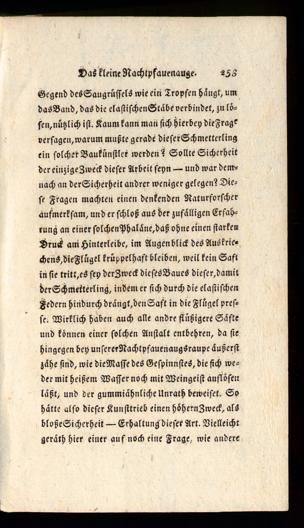 Das kleine Nachtpfauenauge. 253
Gegend des Saugrüssels wie ein Tropfen hängt, um
das Band, das die elastischen Stäbe verbindet, zu lö-
sen, nützlich ist. Kaum kann man sich hierbey die Frage
versagen, warum mußte gerade dieser Schmetterling
ein solcher Baukünstler werden? Sollte Sicherheit
der einzige Zweck dieser Arbeit seyn — und war dem-
nach an der Sicherheit andrer weniger gelegen? Die-
se Fragen machten einen denkenden Naturforscher
aufmerksam, und er schloß aus der zufälligen Erfah-
rung an einer solchen Phaläne, daß ohne einen starken
Druck am Hinterleibe, im Augenblick des Auskrie-
chens, die Flügel krüppelhaft bleiben, weil kein Saft
in sie tritt, es sey der Zweck dieses Baues dieser, damit
der Schmetterling, indem er sich durch die elastischen
Federn hindurch drängt, den Saft in die Flügel pres-
se. Wirklich haben auch alle andre flüßigere Säfte
und können einer solchen Anstalt entbehren, da sie
hingegen bey unserer Nachtpfauenaugsraupe äußerst
zähe sind, wie die Masse des Gespinnstes, die sich we-
der mit heißem Wasser noch mit Weingeist auflösen
läßt, und der gummiähnliche Unrath beweiset. So
hätte also dieser Kunsttrieb einen höhern Zweck, als
bloße Sicherheit — Erhaltung dieser Art. Vielleicht
geräth hier einer auf noch eine Frage, wie andere